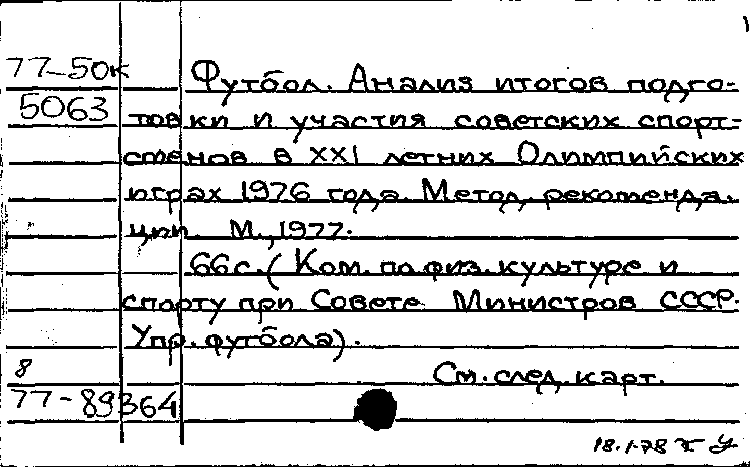 77-50к Футбол. Анализ итогов подго-
5063 товки и участия советских спорт-
сменов в XXI летних Олимпийских
играх 1976 года. Метод. рекоменда-
ции. М., 1977.
66 с. (Ком. по физ. культуре и
спорту при Совете Министров СССР.
Упр. футбола).
8 См. след. карт.
77-89364
18.1-78